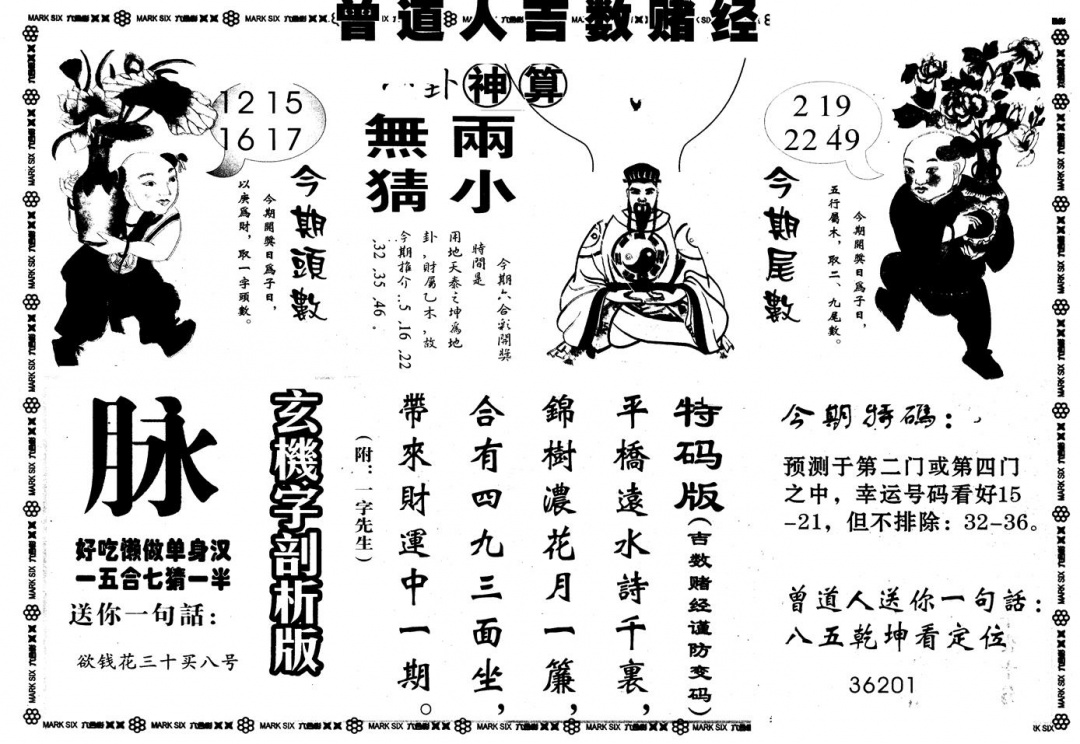 曾道人吉数赌经
MARK SIX 六合彩
卦神算
無猜
兩小
12 15
16 17
今期頭數
今期開獎日為子日,
以庚為財,取一字頭數。
今期六合彩開獎
時間是
用地天泰之坤為地
卦,財屬乙木,故
今期推介..5 .16 .22
.32 .35 .46 .
2 19
22 49
今期尾數
今期開獎日為子日,
五行屬木,取二、九尾數。
脉
好吃懒做单身汉
一五合七猜一半
送你一句話:
欲钱花三十买八号
玄機字剖析版
(附:一字先生)
特码版(吉数赌经谨防变码)
平橋遠水詩千裏,
錦樹濃花月一簾,
合有四九三面坐,
帶來財運中一期。
今期特碼:
预测于第二门或第四门
之中，幸运号码看好15
-21，但不排除: 32-36。
曾道人送你一句話:
八五乾坤看定位
36201